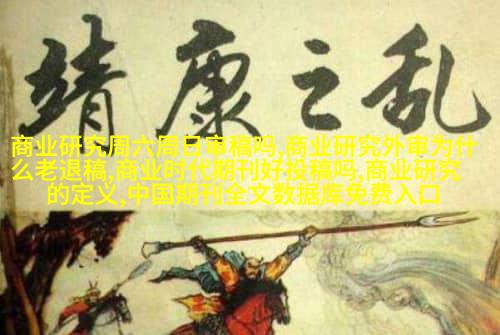 靖康之乱
商业研究周六周日审稿吗,商业研究外审为什
么老退稿,商业时代期刊好投稿吗,商业研究
的定义,中国期刊全文数据库免费入口